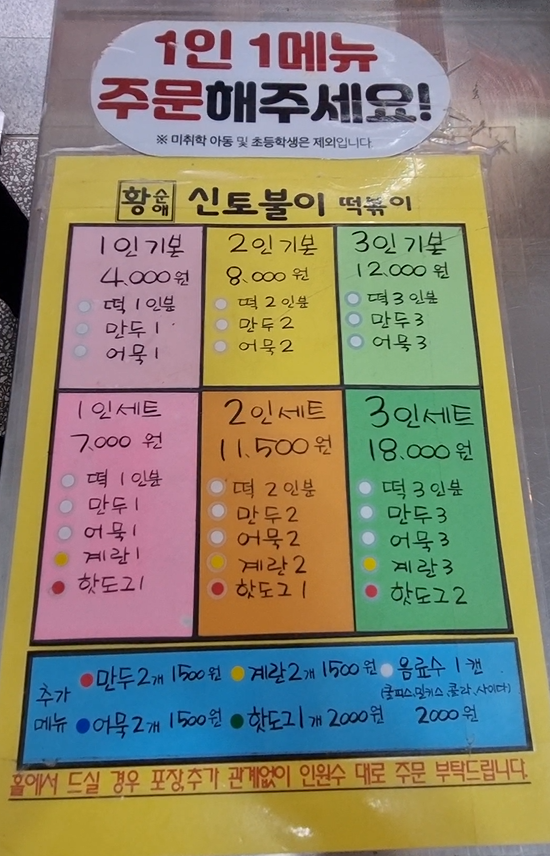 1인 1메뉴
주문해주세요!
※ 미취학 아동 및 초등학생은 제외입니다.
황순애 신토불이 떡볶이
1인기본
4.000원
떡 1인분
만두1
어묵1
2인기본
8.000원
떡 2인분
만두2
어묵2
3인기본
12.000원
떡 3인분
만두3
어묵3
1인세트
7.000 원
떡 1인분
만두1
어묵1
계란1
핫도그1
2인세트
11.500원
떡 2인분
만두2
어묵2
계란2
핫도그1
3인세트
18.000원
떡 3인분
만두3
어묵3
계란3
핫도그2
추가
메뉴
만두2개 1500원
계란2개 1500원
음료수 1캔
(쿨피스,밀키스,콜라,사이다)
어묵2개 1500원
핫도그1개 2000원
2000원
홀에서 드실 경우 포장,추가 관계없이 인원수 대로 주문 부탁드립니다.